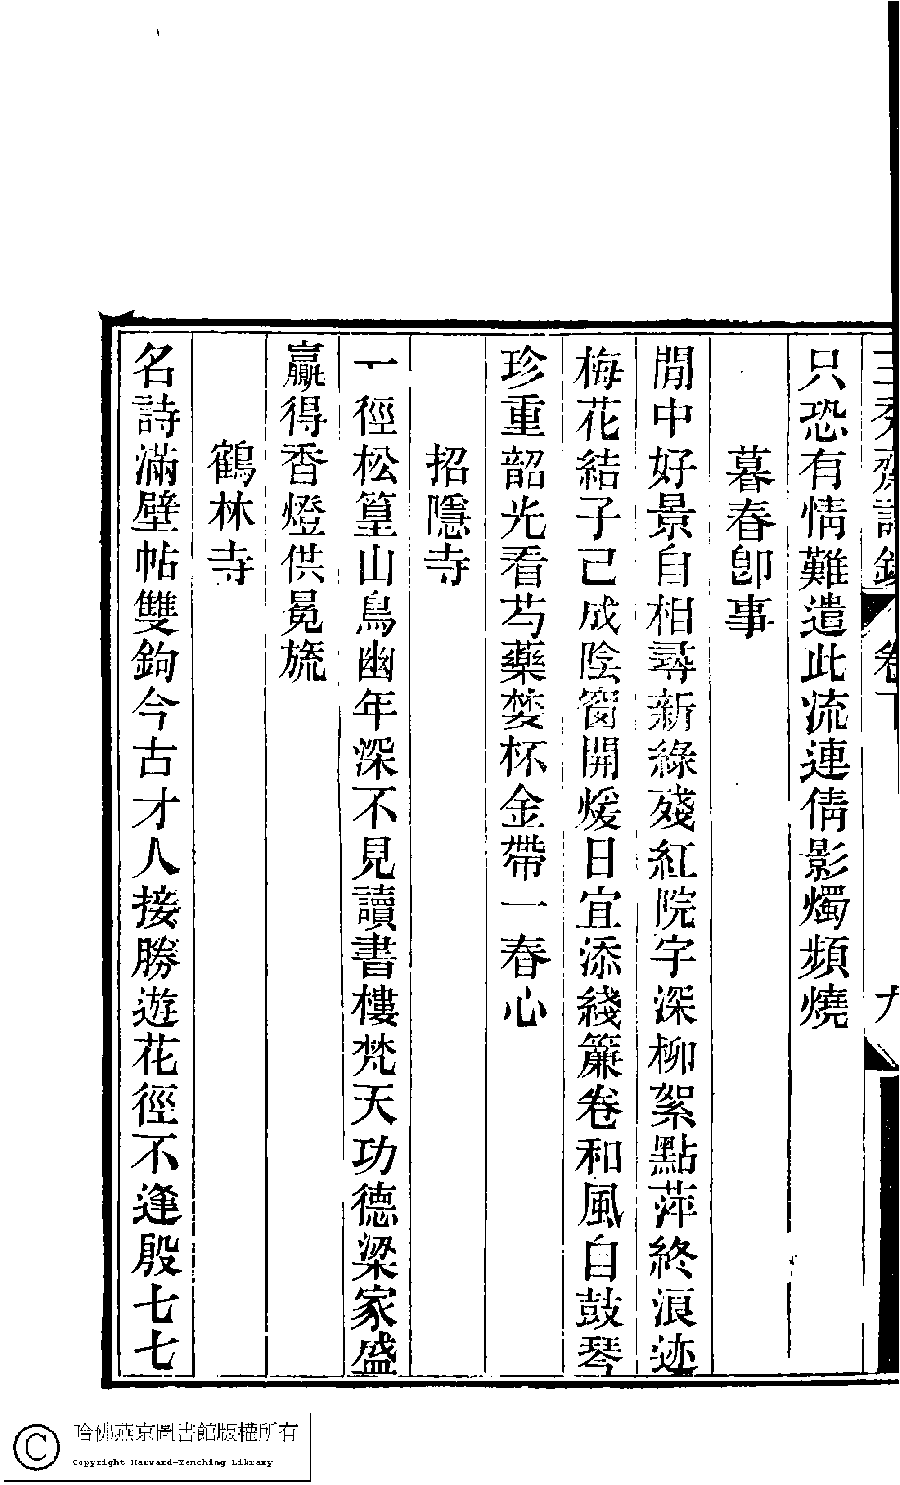 只恐有情難遣此流連倩影燭頻燒
暮春卽事
閒中好景自相尋新綠殘紅院宇深柳絮點萍終浪迹
梅花結子已成陰窗開煖日宜添綫簾卷和風自鼓琴
珍重韶光看芍藥婪杯金帶一春心
招隱寺
一徑松篁山鳥幽年深不見讀書樓梵天功德梁家盛
贏得香燈供冕旒
鶴林寺
名詩滿壁帖雙鉤今古才人接勝遊花徑不逢殷七七
哈佛燕京圖書館版權所有
Copyright Harvard-Yenching Library